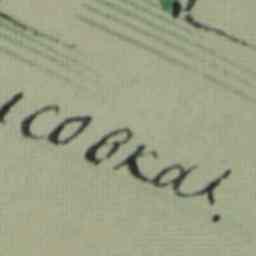 совка!